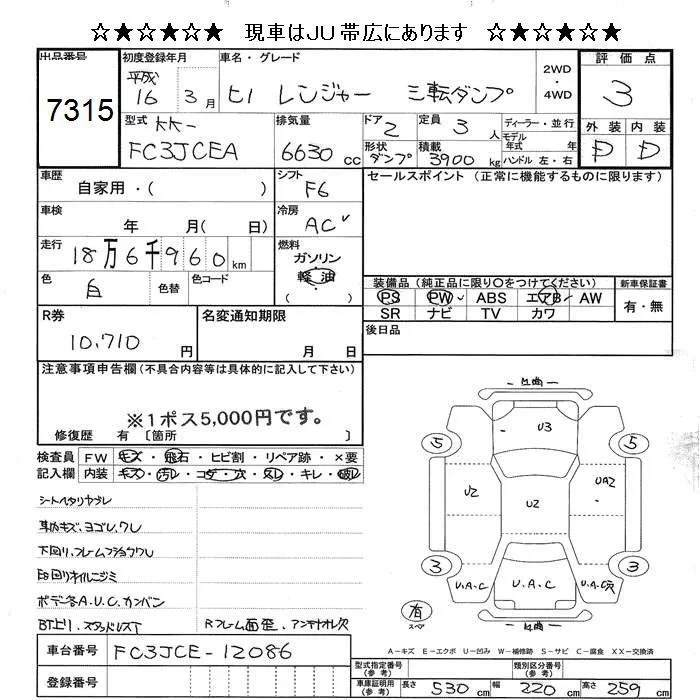 ☆★☆★☆★ 現車はJU帯広にあります ☆★☆★☆★
出品番号
7315
初度登録年月
平成 16 3月
車名・グレード
ヒノ レンジャー 三転ダンプ
2WD
・
4WD
評価点
3
外装 内装
D D
型式 KK-
FC3JCEA
排気量
6630 cc
ドア 2
形状 ダンプ
定員 3 人
積載 3900 kg
ディーラー・並行
モデル年式 年式
ハンドル 左・右
車歴
自家用・( )
シフト
F6
車検
年 月( 日)
冷房
AC
走行
18万6千960 km
燃料
ガソリン
軽油
( )
色
白
色替
色コード
セールスポイント (正常に機能するものに限ります)
装備品(純正品に限り○をつけてください)
PS PW ABS エアB AW
SR ナビ TV カワ
新車保証書
有・無
後日品
R券
10,710 円
名変通知期限
月 日
注意事項申告欄(不具合内容等は具体的に記入して下さい)
※1ポス5,000円です。
修復歴 有 〔箇所 〕
検査員記入欄
FW キズ・飛石・ヒビ割・リペア跡・×要
内装 キズ・汚レ・コゲ・穴・スレ・キレ・破レ
シートヘタリヤブレ
車内キズ、ヨゴレ、ワレ
下回り、フレームサビ
E回りオイルニジミ
ボデー各A.U.C.カンバン
Rフレーム曲歪、アンテナオレ欠
車台番号
FC3JCE-12086
登録番号
曲
U3
5 5
U2
U2
UA2
3 3
U.A.C
U.A.C
U.A.C欠
有
スペア
曲
A-キズ E-エクボ U-凹み W-補修跡 S-サビ C-腐食 XX-交換済
型式指定番号(参考)
類別区分番号(参考)
車庫証明用(参考)
長さ 530 cm
幅 220 cm
高さ 259 cm